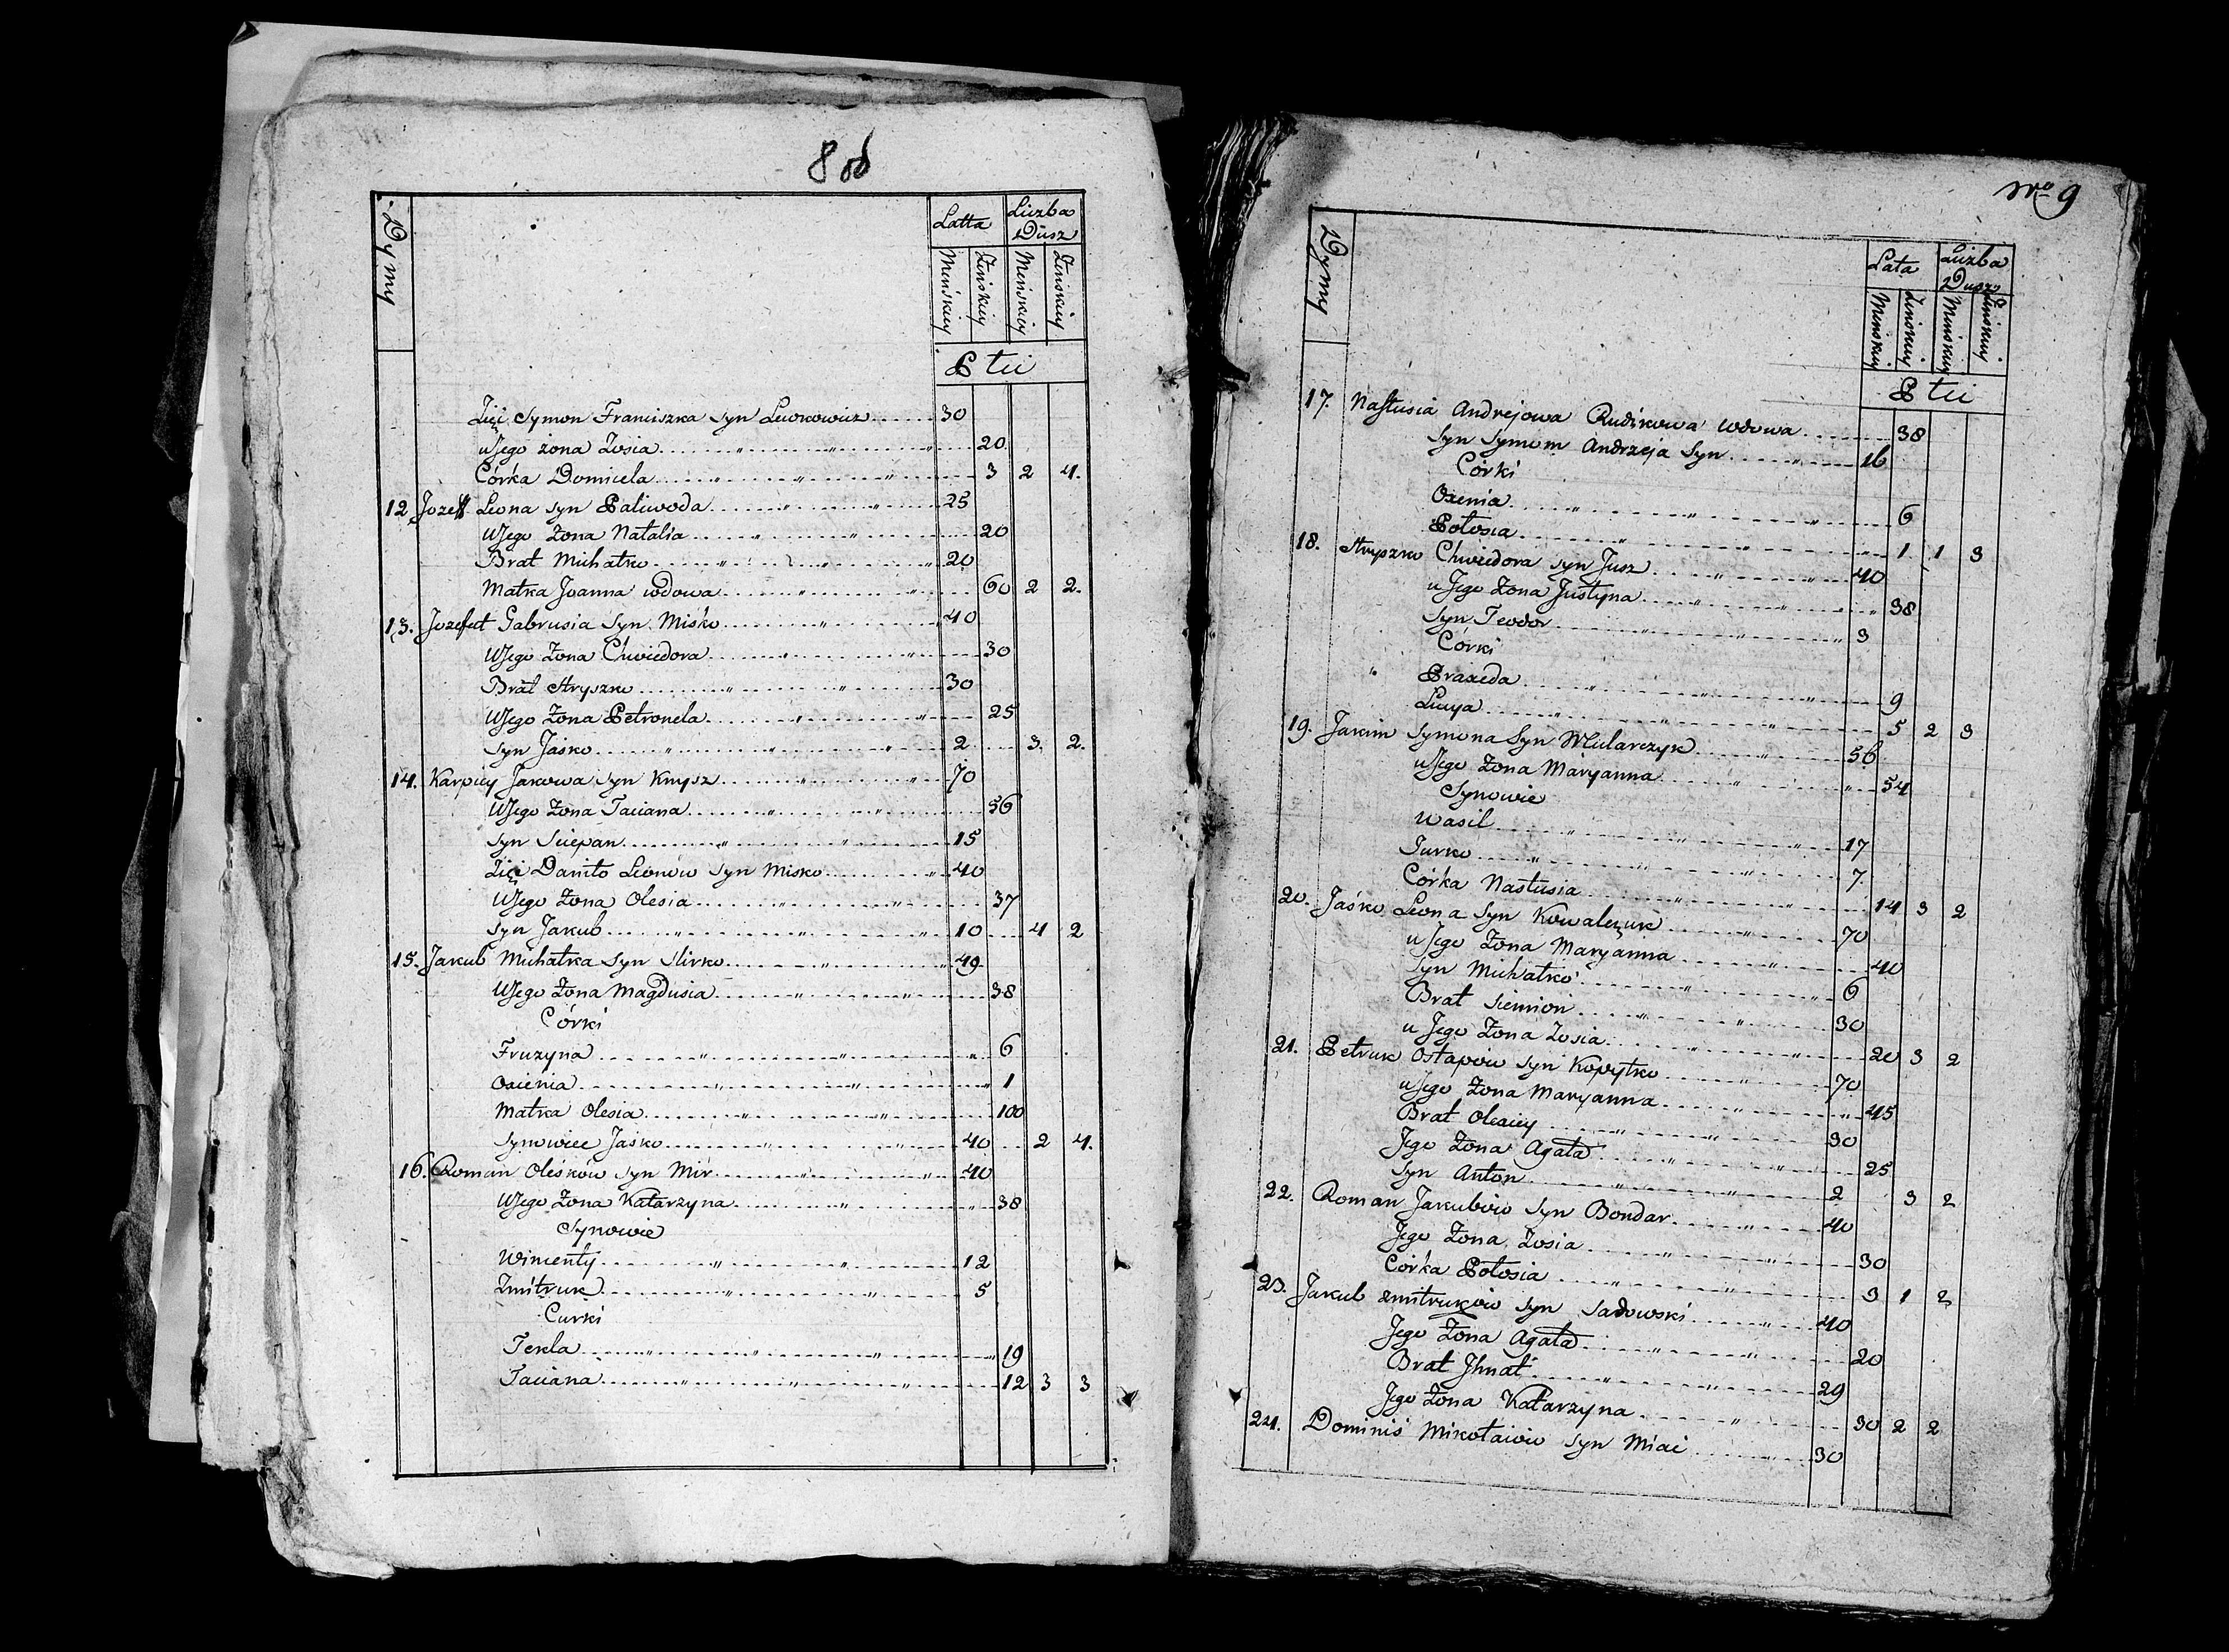 8 od
Dymy
Latta
Liczba Dusz
Męskiey
Żeńskiey
Męskiey
Żeńskiey
Płci
Zięć Symon Franciszka Syn Lewkowicz 30
u Jego żona Zosia 20
Córka Domicela 3 2 4.
12 Jozeff Leona syn Paliwoda 25
U Jego Żona Natalia 20
Brat Michałko 20
Matka Joanna wdowa 60 2 2.
13. Jozefat Gabrusia Syn Miśko 40
U Jego Żona Chwiedora 30
Brat Hryszko 30
U Jego Żona Petronela 25
Syn Jaśko 2 3. 2.
14. Karpiey Jakowa Syn Knysz 70
U Jego Żona Taciana 56
Syn Sciepan 15
Zięć Daniło Leonow Syn Misko 40
U Jego Żona Olesia 37
Syn Jakub 10 4 2
15. Jakub Michałka Syn Slirko 49
U Jego Żona Magdusia 38
Córki
Fruzyna 6
Oxienia 1
Matka Olesia 100
Synowiec Jaśko 40 2 4.
16. Roman Oleśków Syn Mir 40
U Jego Żona Katarzyna 38
Synowie
Wincenty 12
Zmitruk 5
Curki
Tekla 19
Taciana 12 3 3
No 9
Dymy
Lata
Liczba Dusz
Męskiey
Żeńskiey
Męskiey
Żeńskiey
Płci
17. Nastusia Andrejowa Rudikowa wdowa 38
Syn Symom Andrzeja Syn 16
Córki
Oxenia 6
Połosia 1 1 3
18. Hryszko Chwiedora syn Jusz 40
u Jego Żona Justyna 38
Syn Teodor 3
Córki
Praxeda 9
Lucya 5 2 3
19. Jakim Symona Syn Mularczyk 56
u Jego Żona Maryanna 54
Synowie
Wasil 17
Jurko 7.
Córka Nastusia 14 3 2
20. Jaśko Leona Syn Kowalczuk 70
u Jego Żona Maryanna 40
Syn Michałko 6
Brat Siemion 30
u Jego Żona Zosia 20 3 2
21. Petruk Ostapow Syn Kopytko 70
u Jego Żona Maryanna 45
Brat Olexiey 30
Jego Żona Agata 25
Syn Anton 2 3 2
22. Roman Jakubow Syn Bondar 40
Jego Żona Zosia 30
Córka Połosia 3 1 2
23. Jakub Zmitrukow Syn Sadowski 40
Jego Żona Agata 20
Brat Jhnat 29
Jego Żona Katarzyna 30 2 2
24. Dominis Mikołaiow Syn Miać 30